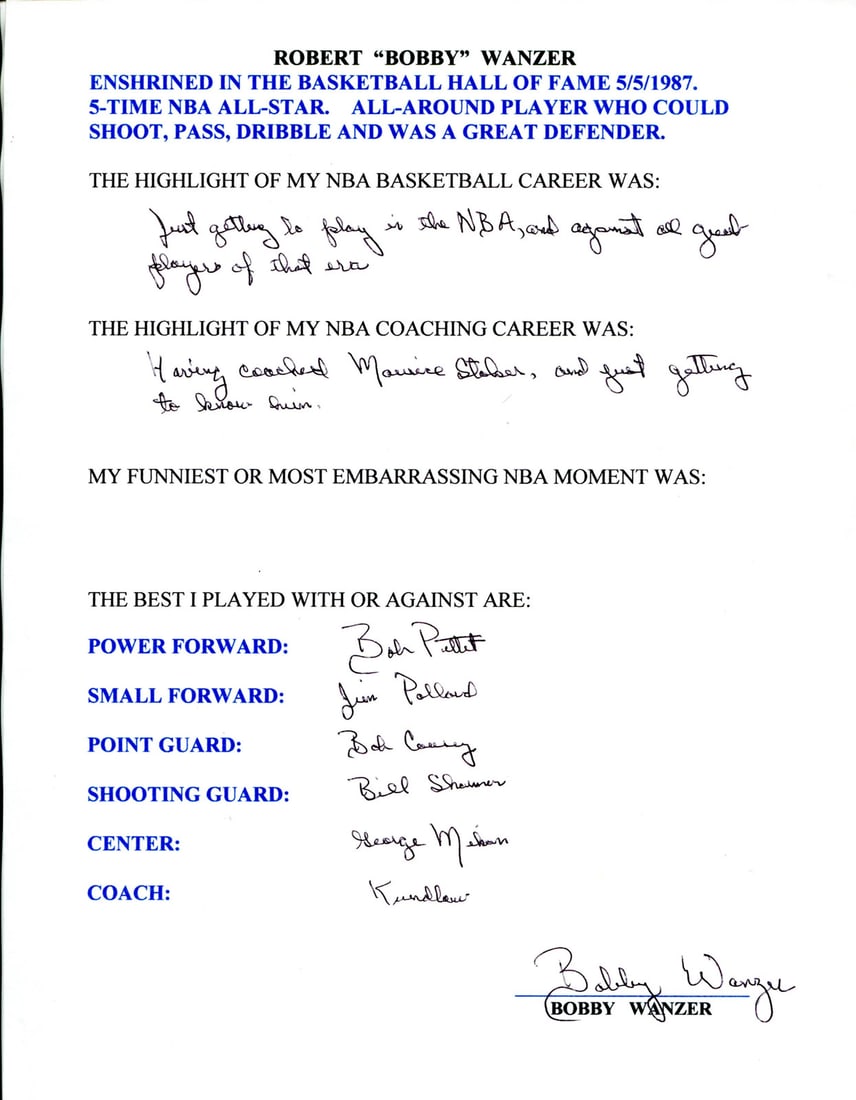 ROBERT “BOBBY” WANZER
ENSHRINED IN THE BASKETBALL HALL OF FAME 5/5/1987.
5-TIME NBA ALL-STAR. ALL-AROUND PLAYER WHO COULD
SHOOT, PASS, DRIBBLE AND WAS A GREAT DEFENDER.
THE HIGHLIGHT OF MY NBA BASKETBALL CAREER WAS:
Just getting to play in the NBA, and against all great
players of that era
THE HIGHLIGHT OF MY NBA COACHING CAREER WAS:
Having coached Maurice Stokes, and just getting
to know him.
MY FUNNIEST OR MOST EMBARRASSING NBA MOMENT WAS:
THE BEST I PLAYED WITH OR AGAINST ARE:
POWER FORWARD: Bob Pettit
SMALL FORWARD: Jim Pollard
POINT GUARD: Bob Cousy
SHOOTING GUARD: Bill Sharman
CENTER: George Mikan
COACH: Kundlaw
Bobby Wanzer
BOBBY WANZER